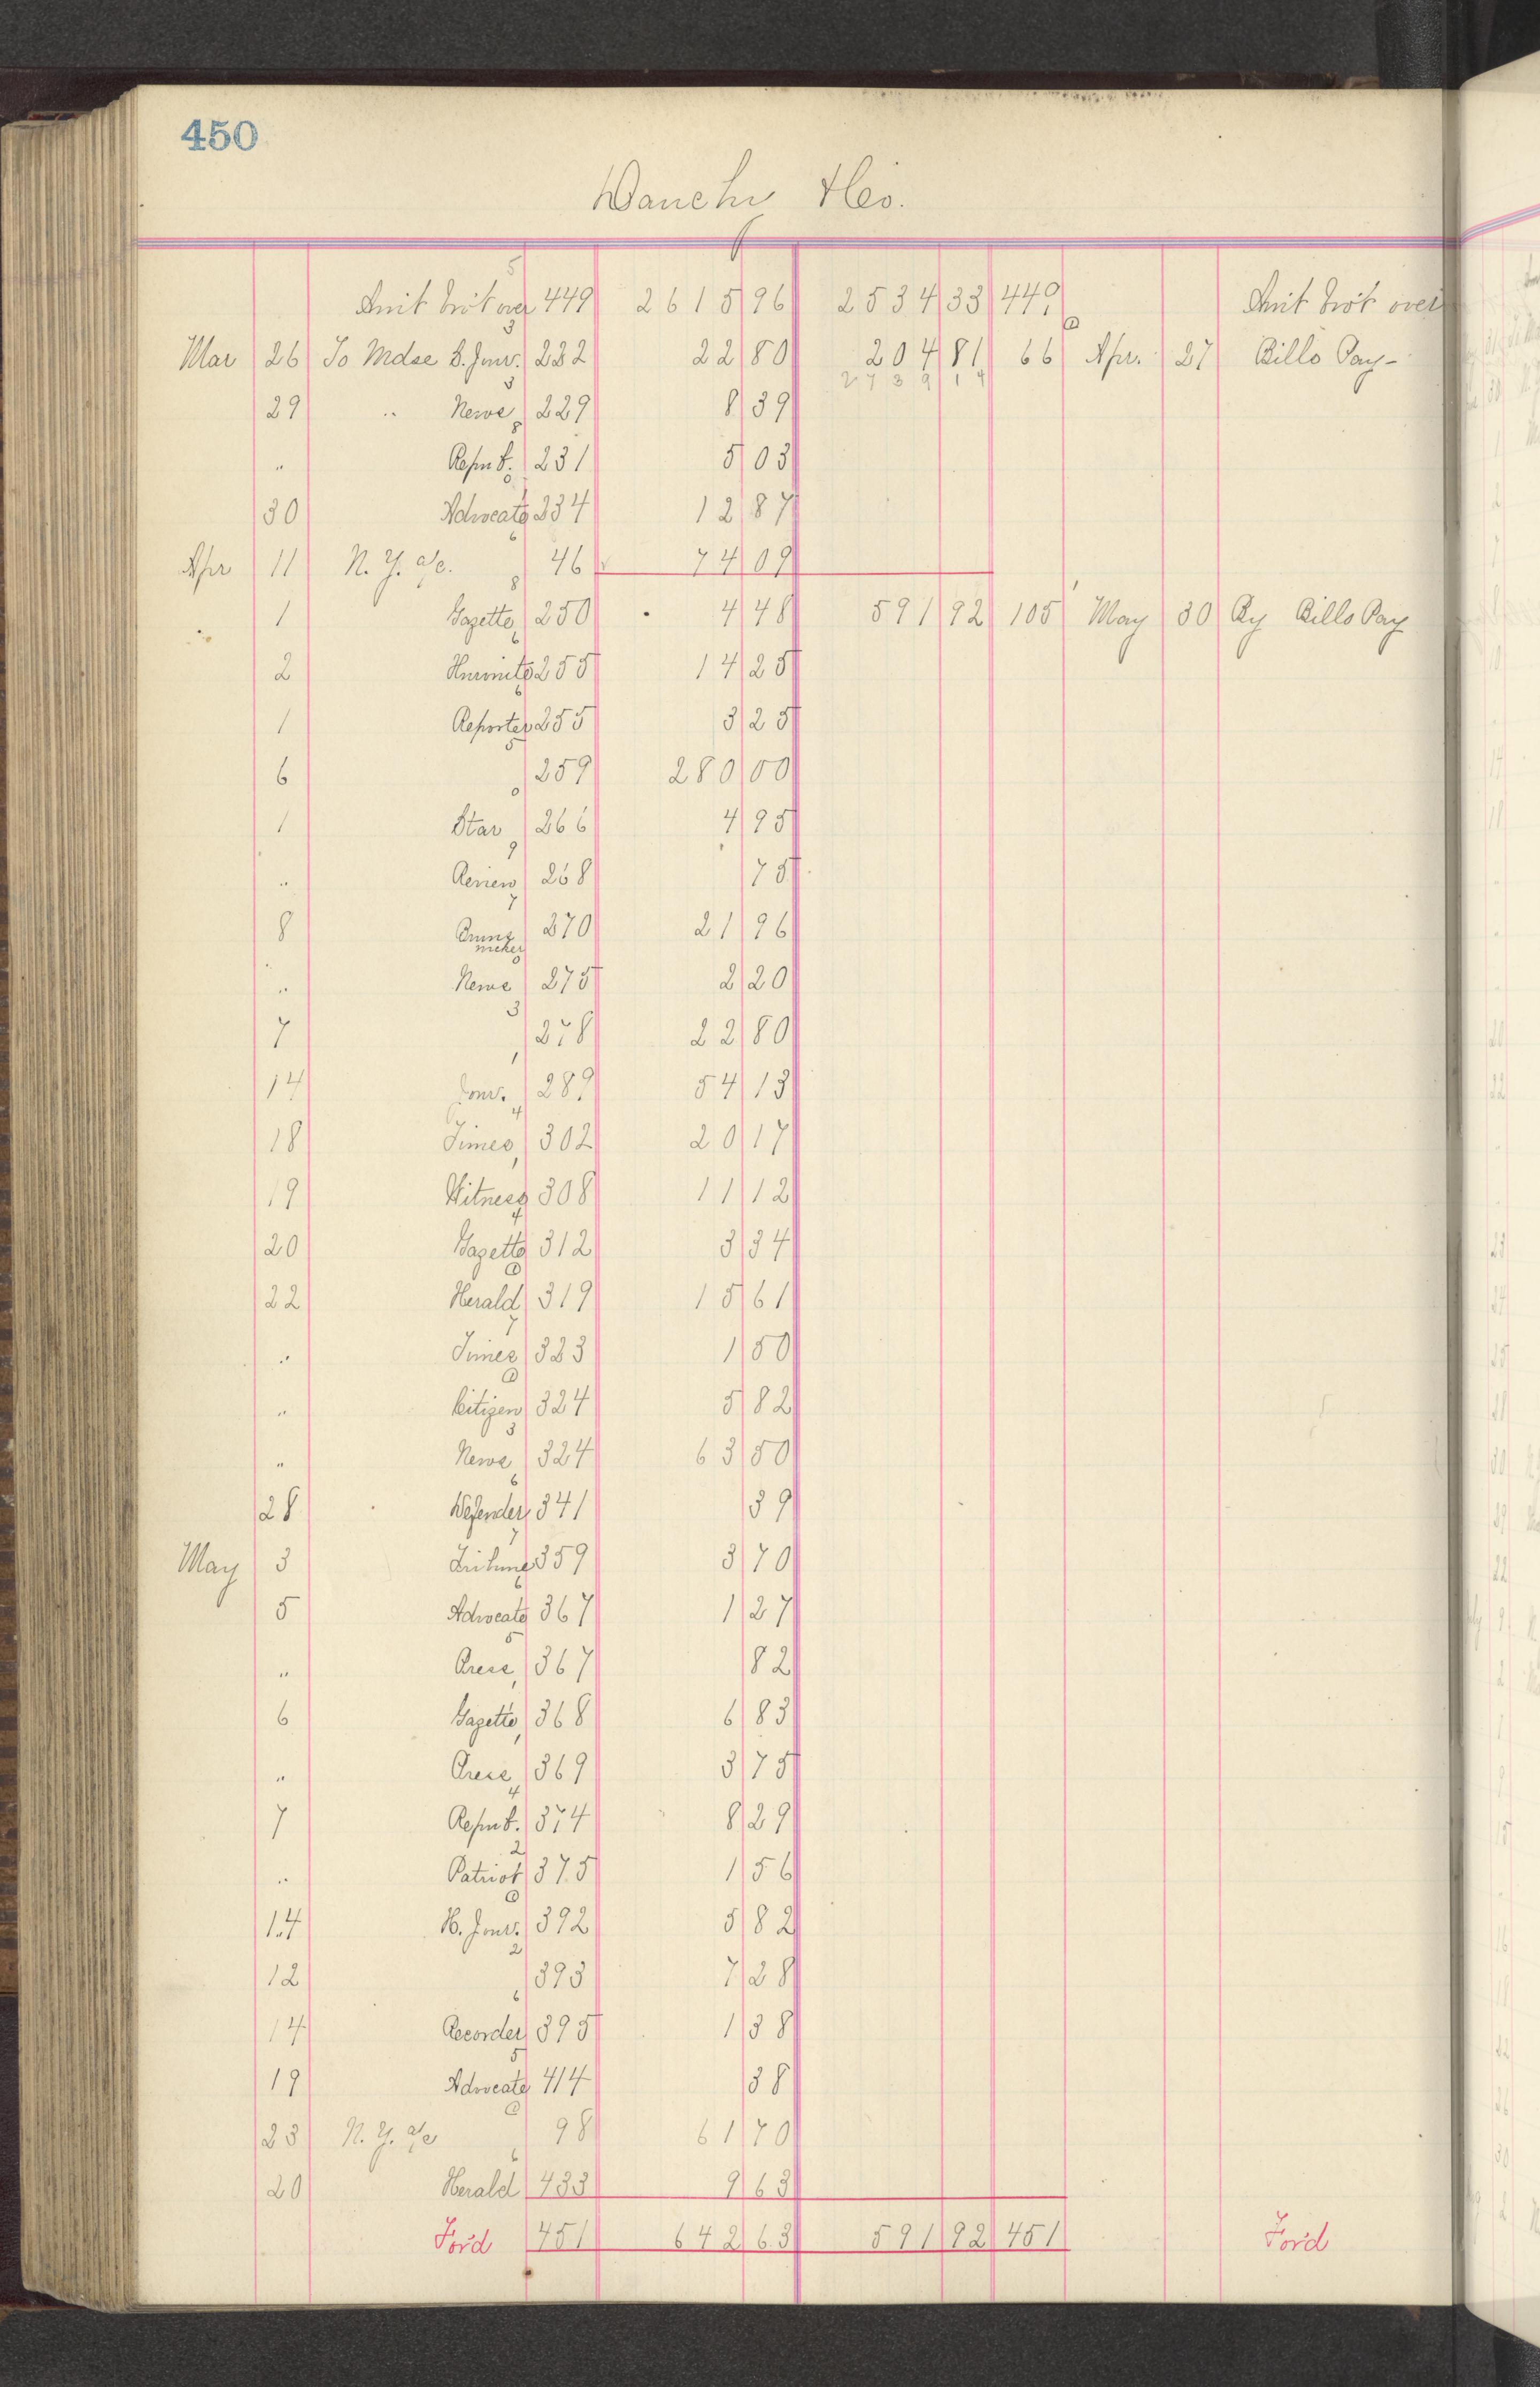 450
Danchy Bros.
Amt bro't over 449 2615 96 2534 33 449 Amt bro't over
Mar 26 To Mdse B. Jour. 232 22 80 204 81 66 Apr. 27 Bills Pay-
2739 14
29 " News 229 8 39
" Repub. 231 5 03
30 Advocate 234 12 87
Apr 11 N. Y. a/c. 46 74 09
1 Gazette 250 4 48 591 92 105 May 30 By Bills Pay
2 Huronite 255 14 25
1 Reporter 255 3 25
6 259 280 00
1 Star 266 4 95
" Review 268 75
8 Quinze 270 21 96
" News 275 2 20
7 278 22 80
14 Jour. 289 54 13
18 Times 302 20 17
19 Witness 308 11 12
20 Gazette 312 3 34
22 Herald 319 15 61
" Times 323 1 50
" Citizen 324 5 82
" News 324 63 50
28 Defender 341 39
May 3 Tribune 359 3 70
5 Advocate 367 1 27
" Press 367 82
6 Gazette 368 6 83
" Press 369 3 75
7 Repub. 374 8 29
" Patriot 375 1 56
14 H. Jour. 392 5 82
12 393 7 28
14 Recorder 395 1 38
19 Advocate 414 38
23 N. Y. a/c 98 61 70
20 Herald 433 9 63
For'd 451 642 63 591 92 451 For'd